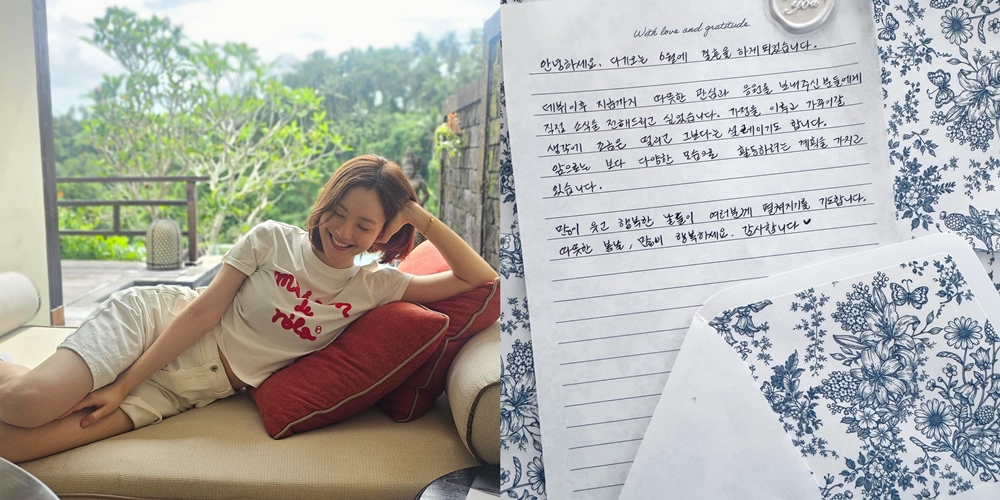 Maison
de
nôla
you
With love and gratitude.
안녕하세요. 다가오는 6월에 결혼을 하게 되었습니다.
데뷔이후 지금까지 따뜻한 관심과 응원을 보내주신 분들에게
직접 소식을 전해드리고 싶었습니다. 가정을 이루고 가꾸어갈
생각에 조금은 떨리고 그보다는 설레이기도 합니다.
앞으로는 보다 다양한 모습으로 활동하려는 계획을 가지고
있습니다.
많이 웃고 행복한 날들이 여러분께 펼쳐지기를 기도합니다.
따뜻한 봄날, 만끽 행복하세요. 감사합니다 ♥